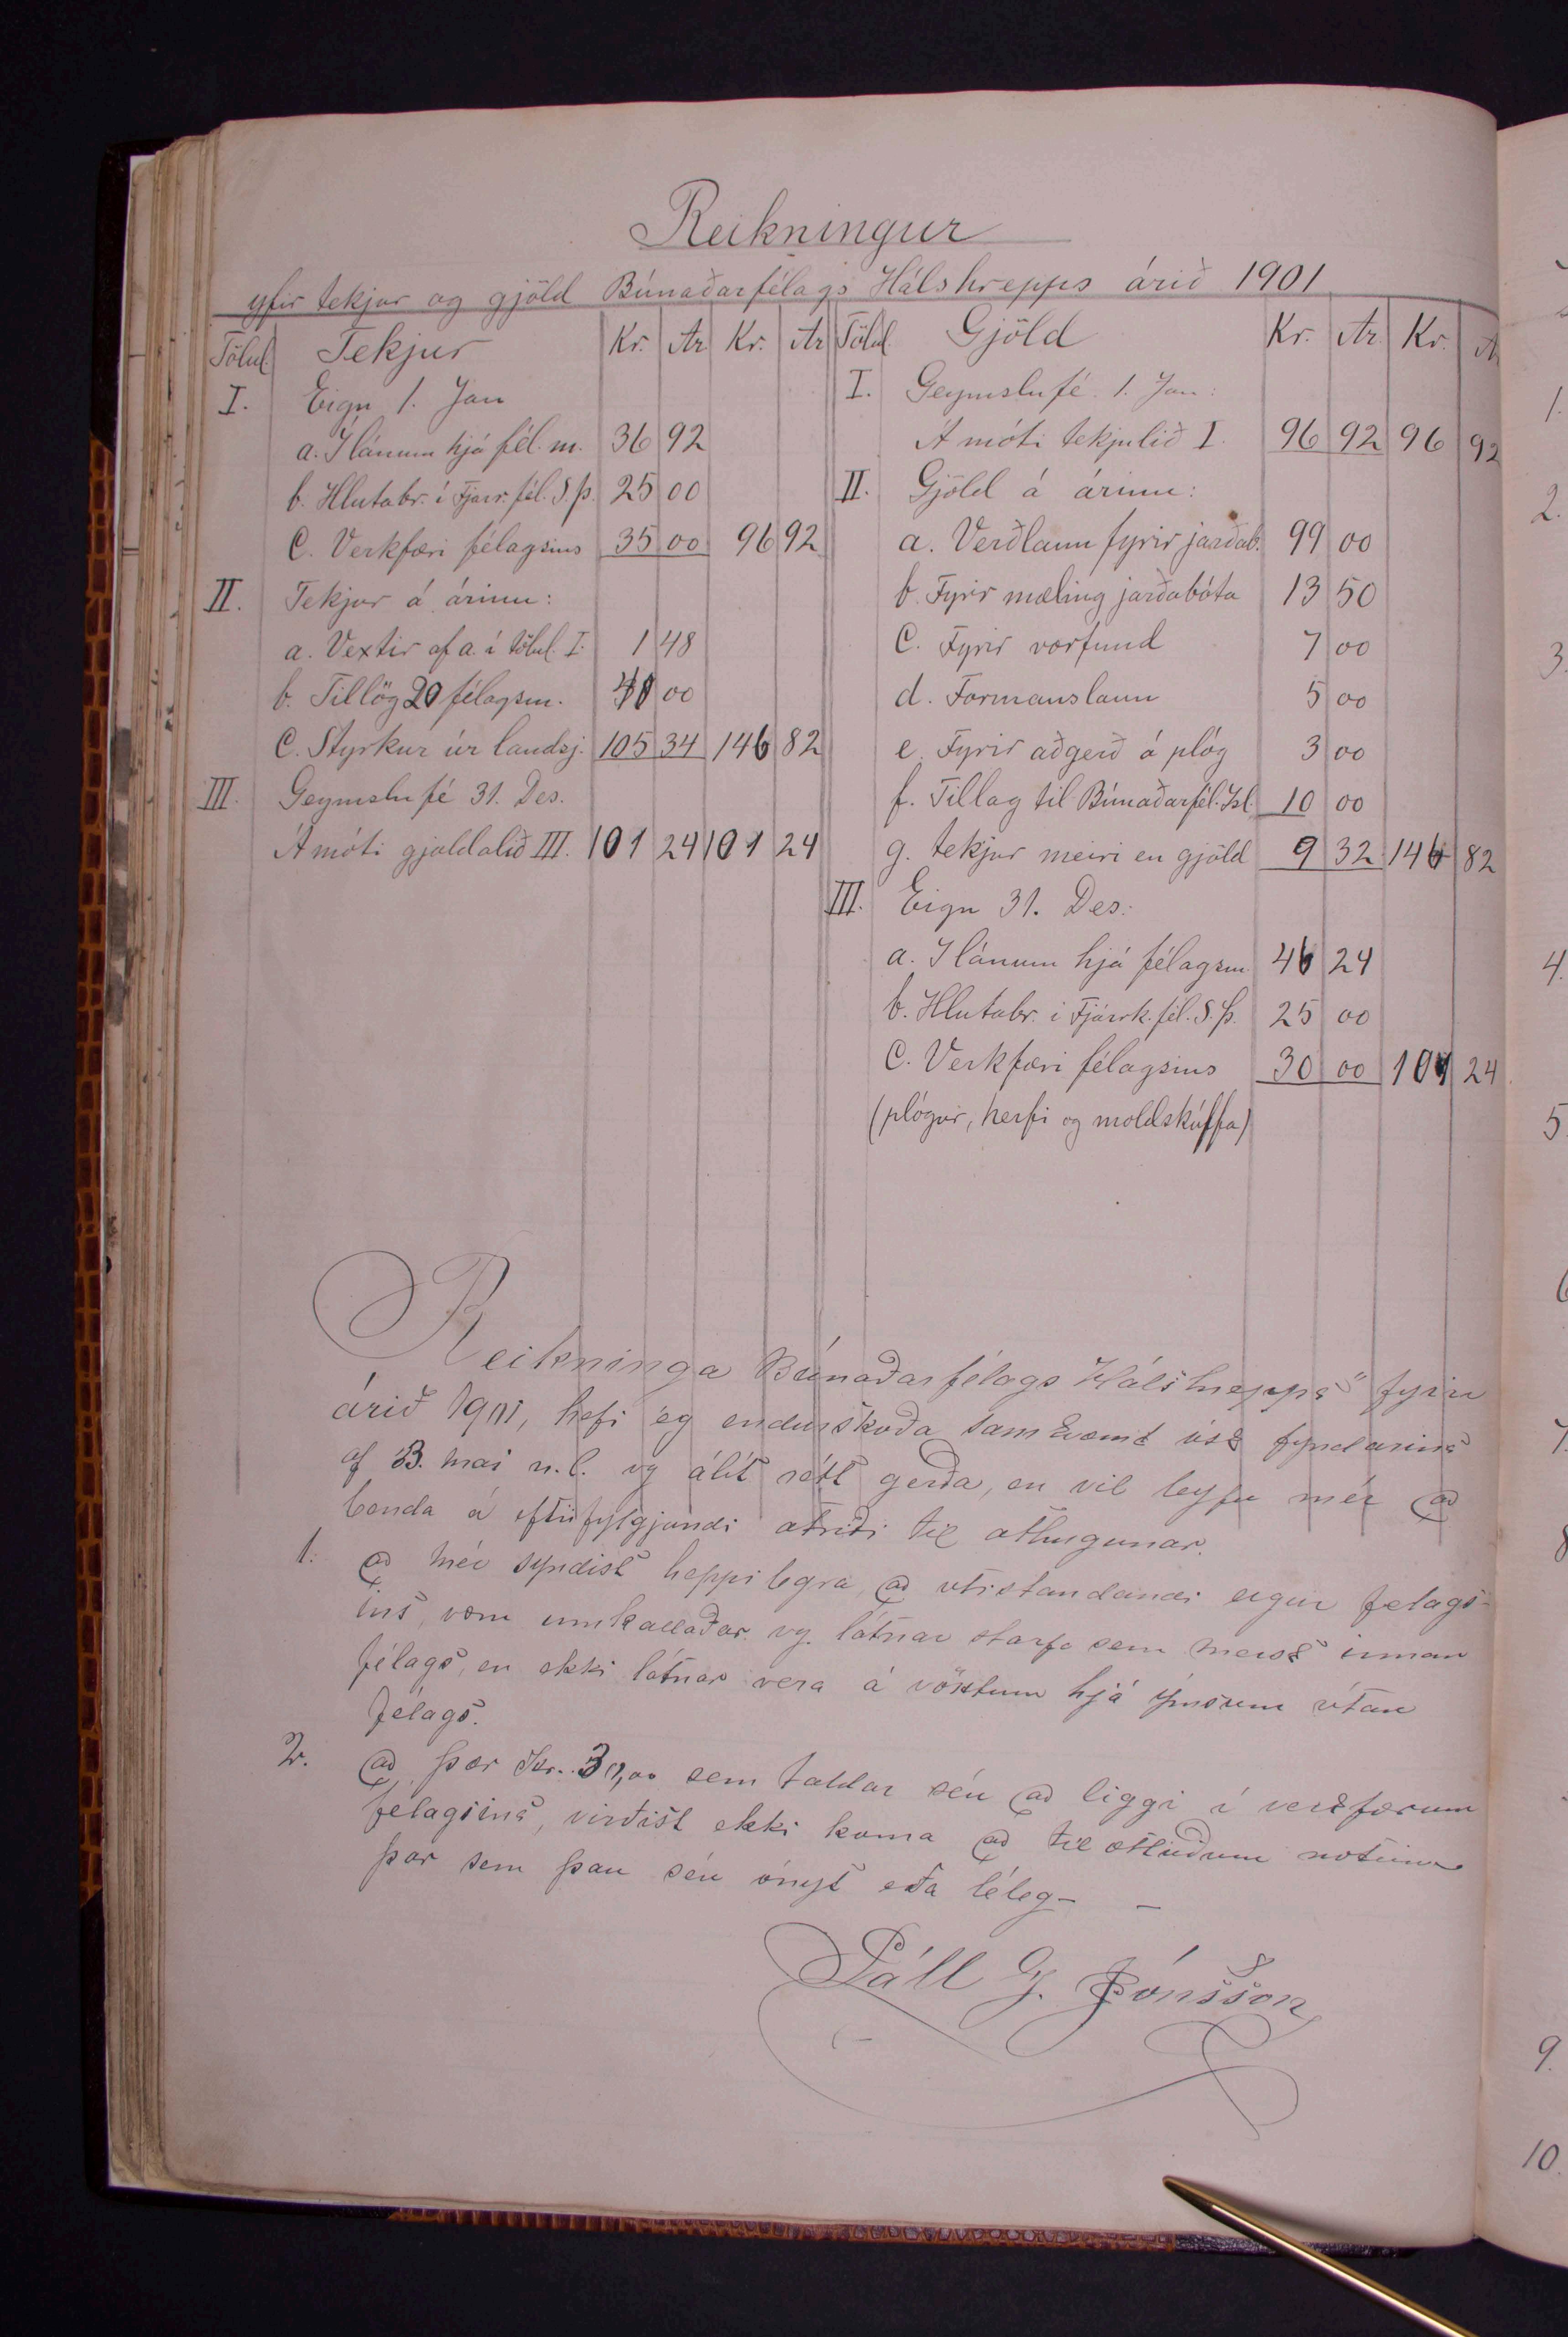 Reikningur
yfir tekjur og gjöld Búnaðarfélags Hálshrepps árið 1901
Tölul. Tekjur Kr. Ar Kr. Ar Tölul. Gjöld Kr. Ar Kr. A
I. Eign 1. Jan I. Geymslufé 1. Jan:
a. Í lánum hjá fél. m. 36 92 Á móti tekjulið I. 96 92 96 92
b. Hlutabr. í Fjárr. fél. S. þ. 25 00 II. Gjöld á árinu:
C. Verkfæri félagsins 35 00 96 92 a. Verðlaun fyrir jarðab. 99 00
II. Tekjur á árinu: b. Fyrir mæling jarðabóta 13 50
a. Vextir af a. í tölul. I. 1 48 C. Fyrir vorfund 7 00
b. Tillög 20 félagsm. 40 00 d. Formanslaun 5 00
C. Styrkur úr landsj. 105 34 146 82 e. Fyrir aðgerð á plóg 3 00
III. Geymslufé 31. Des. f. Tillag til Búnaðarfél. Isl. 10 00
Á móti gjaldalið III. 101 24 101 24 g. tekjur meiri en gjöld 9 32 146 82
III. Eign 31. Des:
a. Í lánum hjá félagsm. 46 24
b. Hlutabr. í Fjárrk. fél. S. þ. 25 00
C. Verkfæri félagsins 30 00 101 24
(plógur, herfi og moldskúffa)
Reikninga Búnaðarfélags Hálshrepps" fyrir
árið 1901, hefi ég endurskoða samkvæmt ósk fyndarins
af 3. mai n.l. og álít rétt gerða, en vil leyfa mér að
benda á eftirfylgjandi atriði til athugunar.
1. að mér syndist heppilegra, að útistandandi eigur felags-
ins, væru innkallaðar og látnar starfa sem mest innan
félags, en ekki látnar vera á vöxtum hjá ýmsum útan
félags.
2. að þær Kr. 30,00 sem taldar séu að liggi í verkfærum
félagsins, virðist ekki koma að tilætluðum notum
þar sem þau séu ónyt eða léleg -  -
Páll G. Jónsson